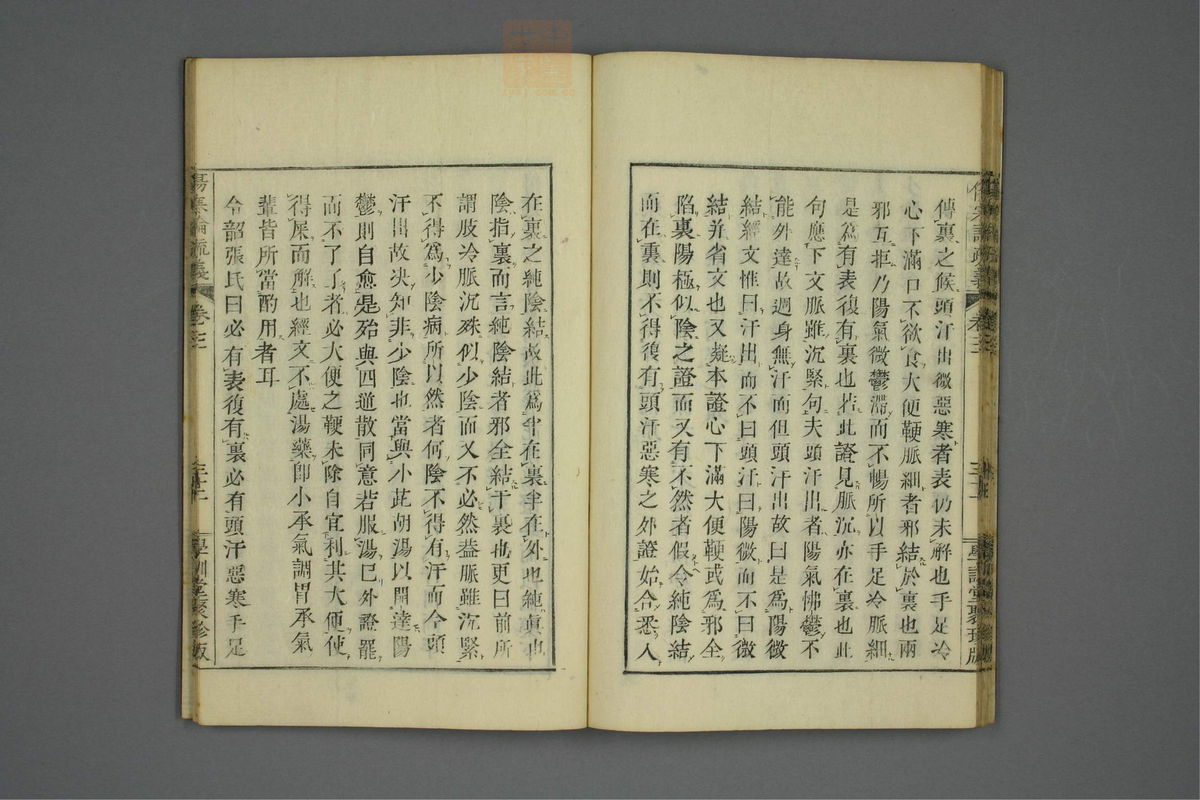 傳裏之候頭汗出微惡寒者表仍未解也手足冷
心下滿口不欲食大便鞕脈細者邪結於裏也兩
邪互拒乃陽氣微鬱滯而不暢所以手足冷脈細
是爲有表復有裏也若此證見脈沉亦在裏也此
句應下文脈雖沉緊句夫頭汗出者陽氣怫鬱不
能外達故週身無汗而但頭汗出故曰是爲陽微
結經文惟曰汗出而不曰頭汗曰陽微而不曰微
結并省文也又疑本證心下滿大便鞕或爲邪全
陷裏陽極似陰之證而又有不然者假令純陰結
而在裏則不得復有頭汗惡寒之外證始合悉入
在裏之純陰結故此爲半在裏半在外也純眞也
陰指裏而言純陰結者邪全結于裏也更曰前所
謂肢冷脈沉殊似少陰而又不必然葢脈雖沉緊
不得爲少陰病所以然者何陰不得有汗而今頭
汗出故決知非少陰也當與小茈胡湯以開達陽
鬱則自愈是殆與四逆散同意若服湯巳外證罷
而不了了者必大便之鞕未除自宜利其大便使
得屎而解也經文不處湯藥卽小承氣調胃承氣
輩皆所當酌用者耳
令韶張氏曰必有表復有裏必有頭汗惡寒手足
傷寒論疏義 卷三 三十二 學訓堂聚珍版